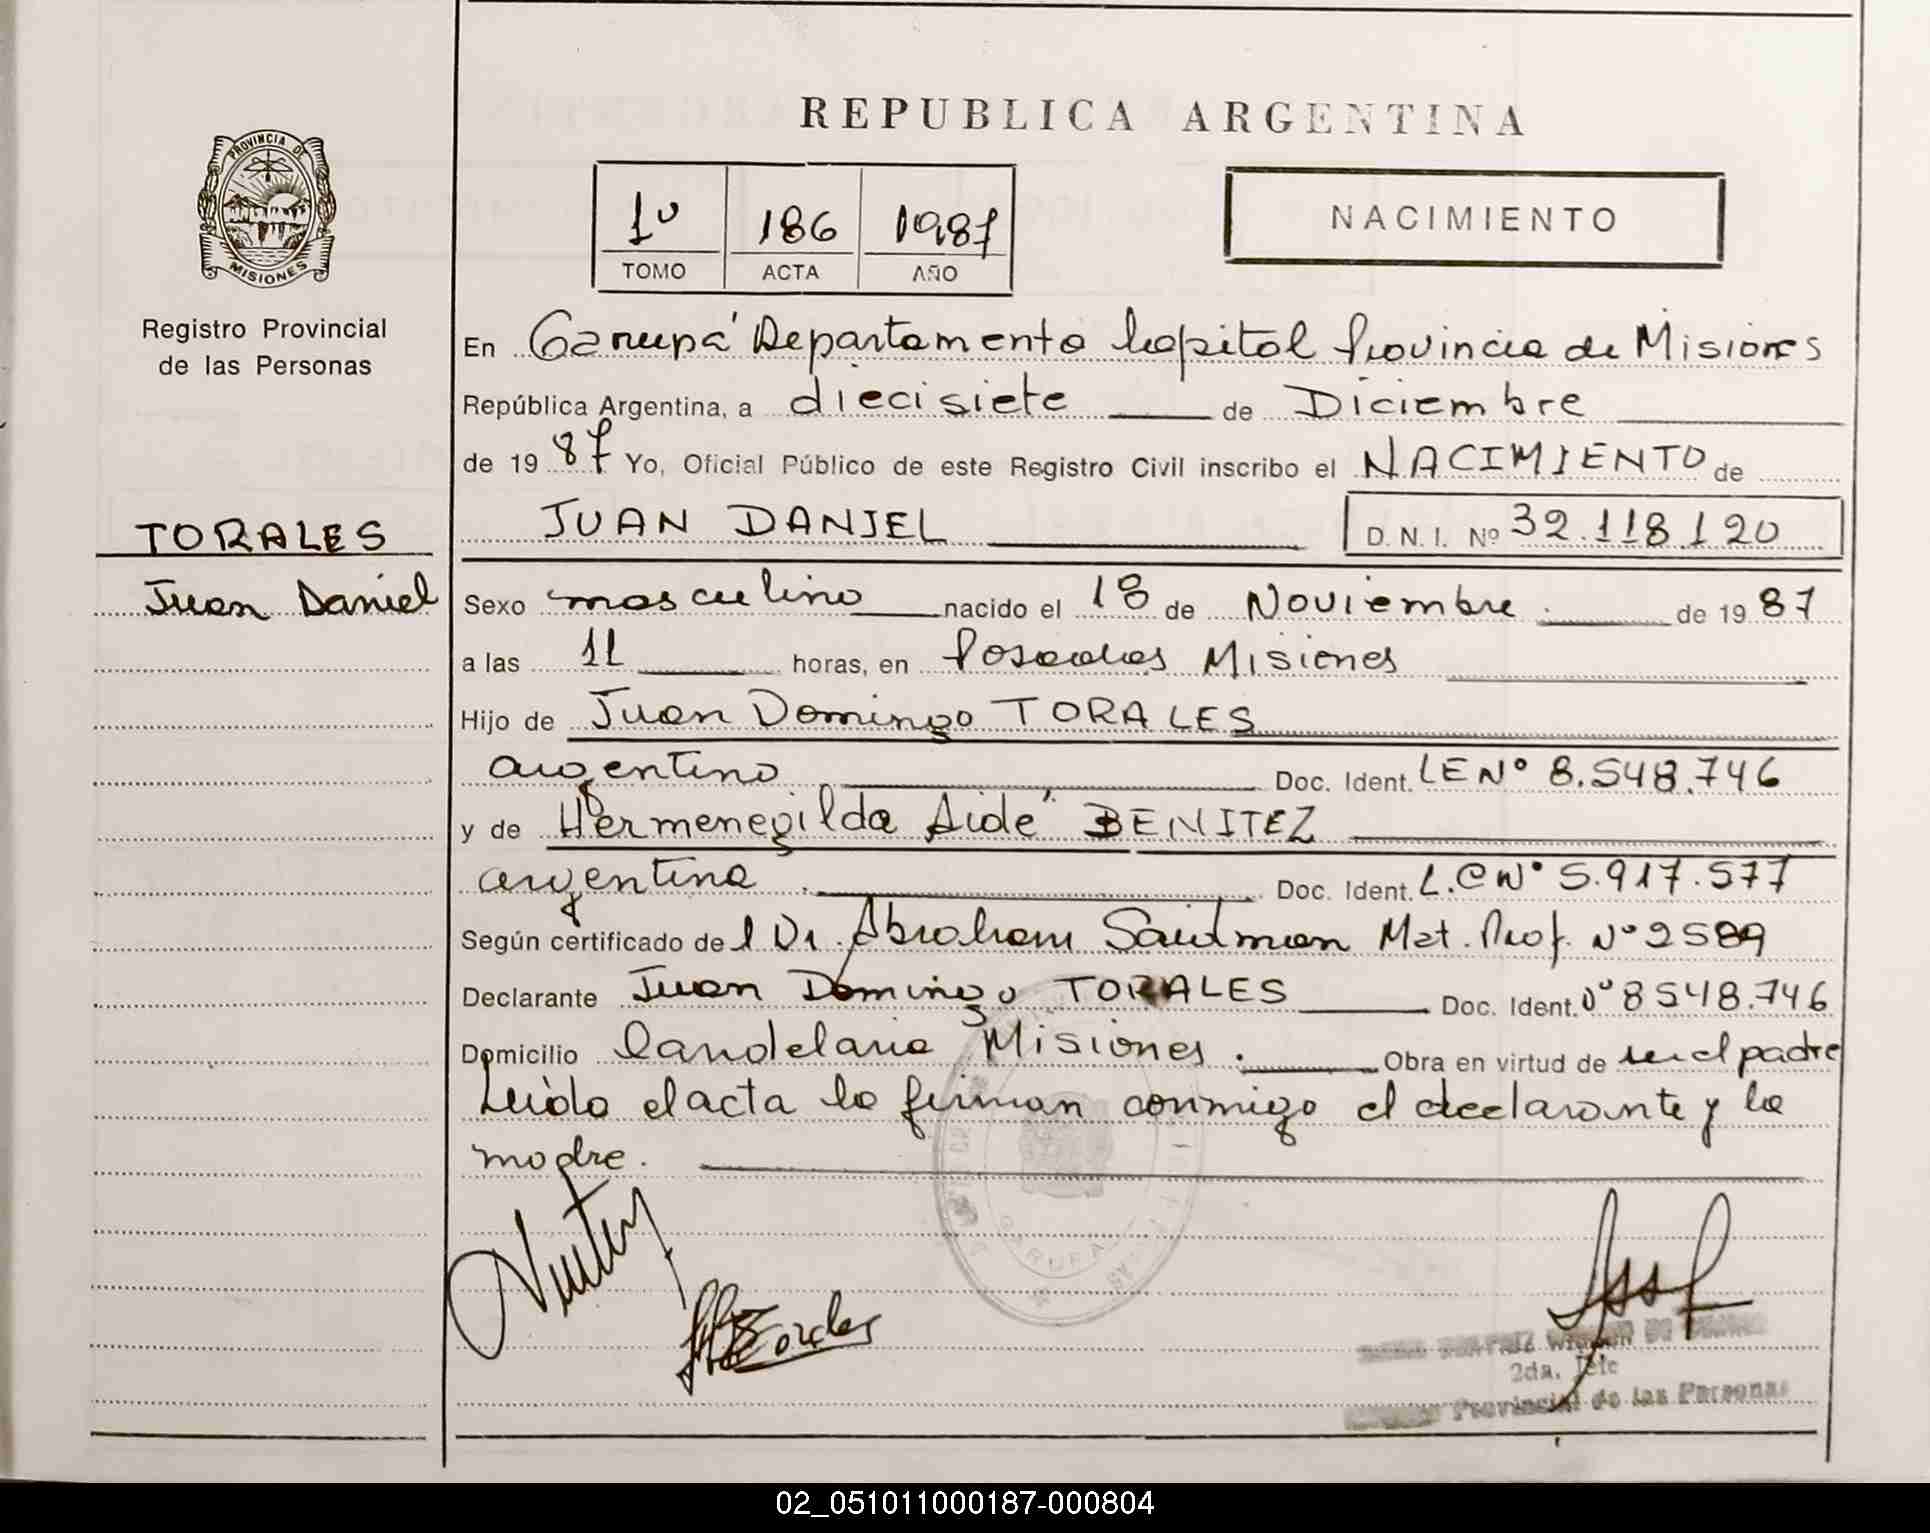 REPUBLICA ARGENTINA
PROVINCIA DE
MISIONES
Registro Provincial
de las Personas
1º 186 1987
TOMO ACTA AÑO
NACIMIENTO
En Garupá Departamento Capital Provincia de Misiones
República Argentina, a diecisiete de Diciembre
de 1987 Yo, Oficial Público de este Registro Civil inscribo el NACIMIENTO de
JUAN DANIEL D. N. I. Nº 32.118.120
TORALES
Juan Daniel
Sexo masculino nacido el 18 de Noviembre de 1987
a las 11 horas, en Posadas Misiones
Hijo de Juan Domingo TORALES
argentino Doc. Ident. LE Nº 8.548.746
y de Hermenegilda Aidé BENITEZ
argentina Doc. Ident. L.C Nº 5.917.577
Según certificado del Dr. Abraham Mat. Prof. Nº 2589
Declarante Juan Domingo TORALES Doc. Ident. Nº 8548.746
Domicilio Candelaria Misiones. Obra en virtud de ser el padre
Leído el acta la firman conmigo el declarante y la
madre.
GARUPA
2da. Jefe
Provincial de las Personas
02_051011000187-000804